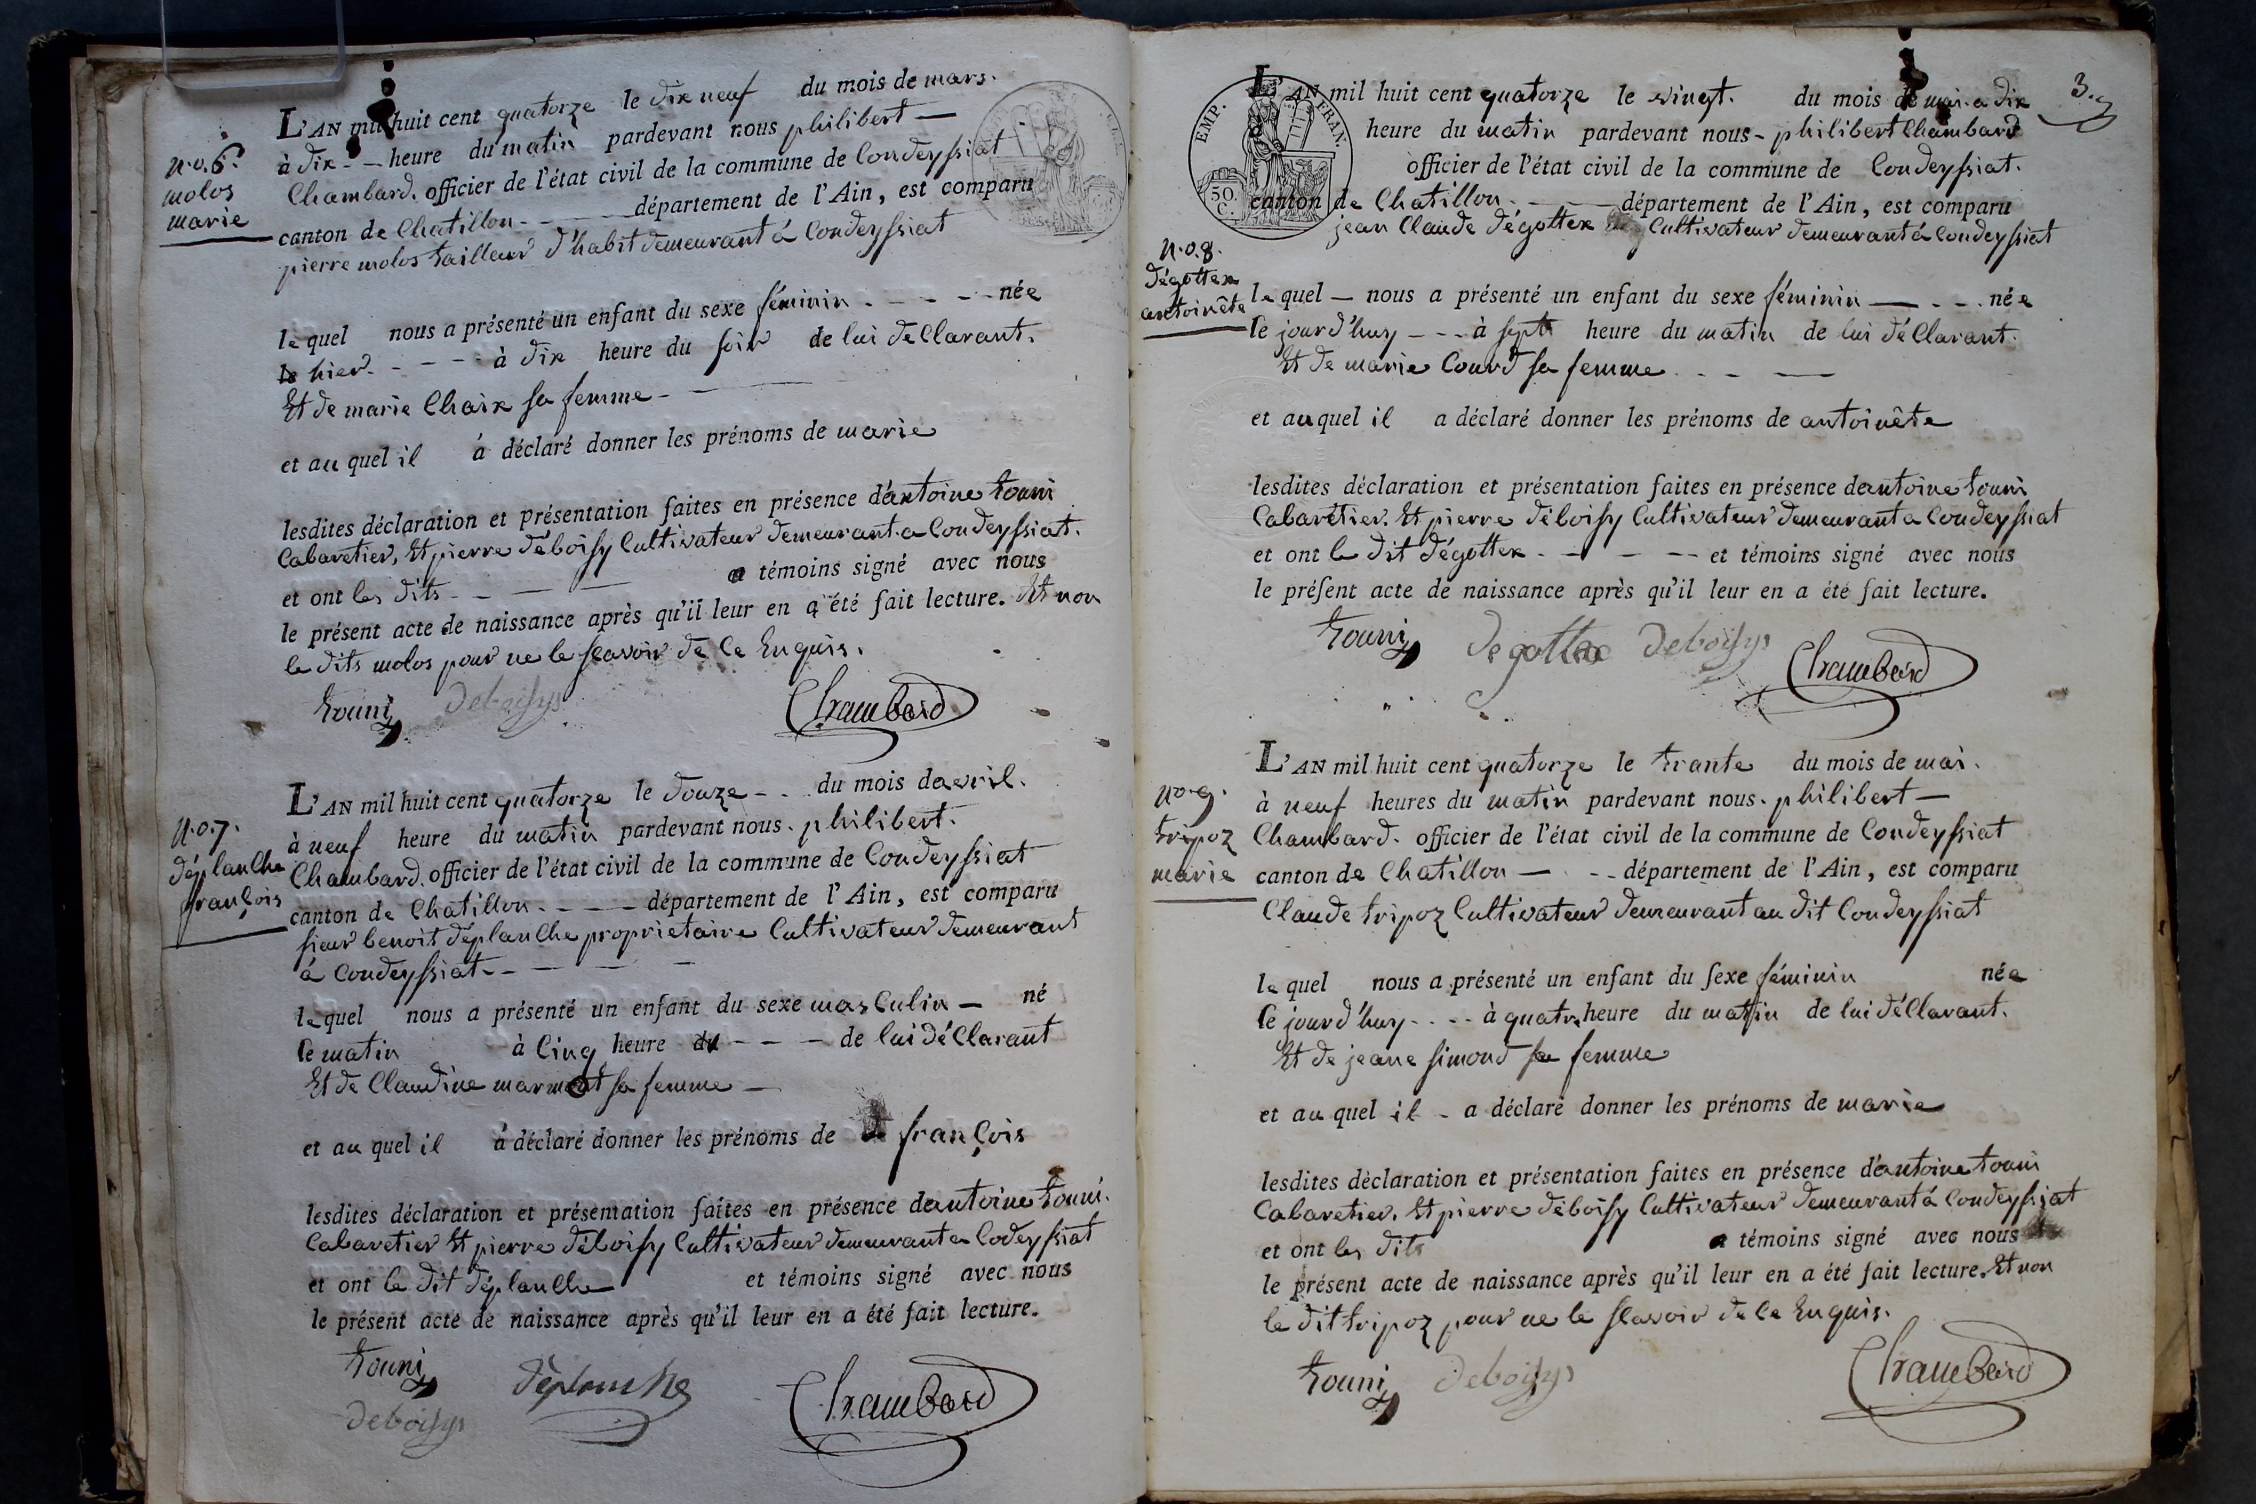 L'AN mil huit cent quatorze le dix neuf du mois de mars.
à dix heure du matin pardevant nous philibert
Chambard. officier de l'état civil de la commune de Condeyssiat
canton de Chatillon département de l'Ain, est comparu
pierre molos tailleur d'habit demeurant á Condeyssiat
n.o.6.
molos
marie
le quel nous a présenté un enfant du sexe féminin née
le hier. à dix heure du soir de lui déClarant.
Et de marie Chaix sa femme
et au quel il á déclaré donner les prénoms de marie
lesdites déclaration et présentation faites en présence d'antoine touni
Cabaretier, Et pierre déboisy Cultivateur demeurant a Condeyssiat.
et ont les dits témoins signé avec nous
le présent acte de naissance après qu'il leur en a été fait lecture. Et non
le dits molos pour ne le scavoir de Ce Enquis.
touni Deboisys Chambard
L'AN mil huit cent quatorze le douze du mois davril.
à neuf heure du matin pardevant nous. philibert.
Chambard. officier de l'état civil de la commune de Condeyssiat
canton de Chatillon. département de l'Ain, est comparu
sieur benoit déplanche proprietaire Cultivateur demeurant
á Condeyssiat
n.o.7.
déplanche
françois
le quel nous a présenté un enfant du sexe masCulin né
Ce matin à Cinq heure du de lui déClarant
Et de Claudine marmont sa femme
et au quel il á déclaré donner les prénoms de françois
lesdites déclaration et présentation faites en présence dantoine touni.
Cabaretier Et pierre déboisy Cultivateur demeurant a Codeyssiat
et ont le dit déplanche et témoins signé avec nous
le présent acte de naissance après qu'il leur en a été fait lecture.
touni déplanche Chambard
Deboisys
3.
EMP. FRAN.
50 C.
L'AN mil huit cent quatorze le vingt. du mois de mai. a dix
heure du matin pardevant nous philibert Chambard
officier de l'état civil de la commune de Condeyssiat.
canton de Chatillon. département de l'Ain, est comparu
jean Claude dégottex Cultivateur demeurant á Condeyssiat
n.o.8.
dégottex
antoinête
le quel nous a présenté un enfant du sexe féminin née
Ce jourd'huy à sept heure du matin de lui déClarant.
Et de marie Courd sa femme
et au quel il a déclaré donner les prénoms de antoinête
lesdites déclaration et présentation faites en présence dantoine touni
Cabarétier. Et pierre déboisy Cultivateur demeurant a Condeyssiat
et ont le dit dégottex et témoins signé avec nous
le présent acte de naissance après qu'il leur en a été fait lecture.
touni degottex Deboisys Chambard
L'AN mil huit cent quatorze le trante du mois de mai.
à neuf heures du matin pardevant nous. philibert
Chambard. officier de l'état civil de la commune de Condeyssiat
canton de Chatillon département de l'Ain, est comparu
Claude tripoz Cultivateur demeurant au dit Condeyssiat
no.9.
tripoz
marie
le quel nous a présenté un enfant du sexe féminin née
Ce jourd'huy à quatre heure du matin de lui déClarant.
Et de jeane simond sa femme
et au quel il a déclaré donner les prénoms de marie
lesdites déclaration et présentation faites en présence d'antoine touni
Cabaretier. Et pierre déboisy Cultivateur demeurant á Condeyssiat
et ont les dits témoins signé avec nous
le présent acte de naissance après qu'il leur en a été fait lecture. Et non
le dit tripoz pour ne le scavoir de Ce Enquis.
touni Deboisys Chambard